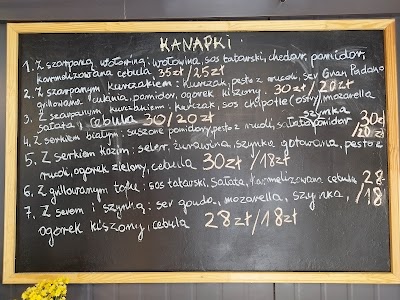 KANAPKI:
1. Z szarpaną wołowiną: wołowina, sos tatarski, chedar, pomidor,
karmelizowana cebula 35zł/25zł
2. Z szarpanym kurczakiem: kurczak, pesto z rucoli, ser Grana Padano
grillowana cukinia, pomidor, ogórek kiszony 30zł/20zł
3. Z szarpanym kurczakiem: kurczak, sos chipotle (ostry) mozarella
sałata, cebula 30/20zł szynka
4. Z serkiem białym: suszone pomidory, pesto z rucoli, sałata, pomidor 30zł
/20zł
5. Z serkiem kozim: seler, żurawina, szynka gotowana, pesto z
rucoli, ogórek zielony, cebula 30zł/18zł
6. Z grillowanym tofu: sos tatarski, sałata, karmelizowana cebula 28
/18
7. Z serem i szynką: ser gouda, mozarella, szynka,
ogórek kiszony, cebula 28zł/18zł